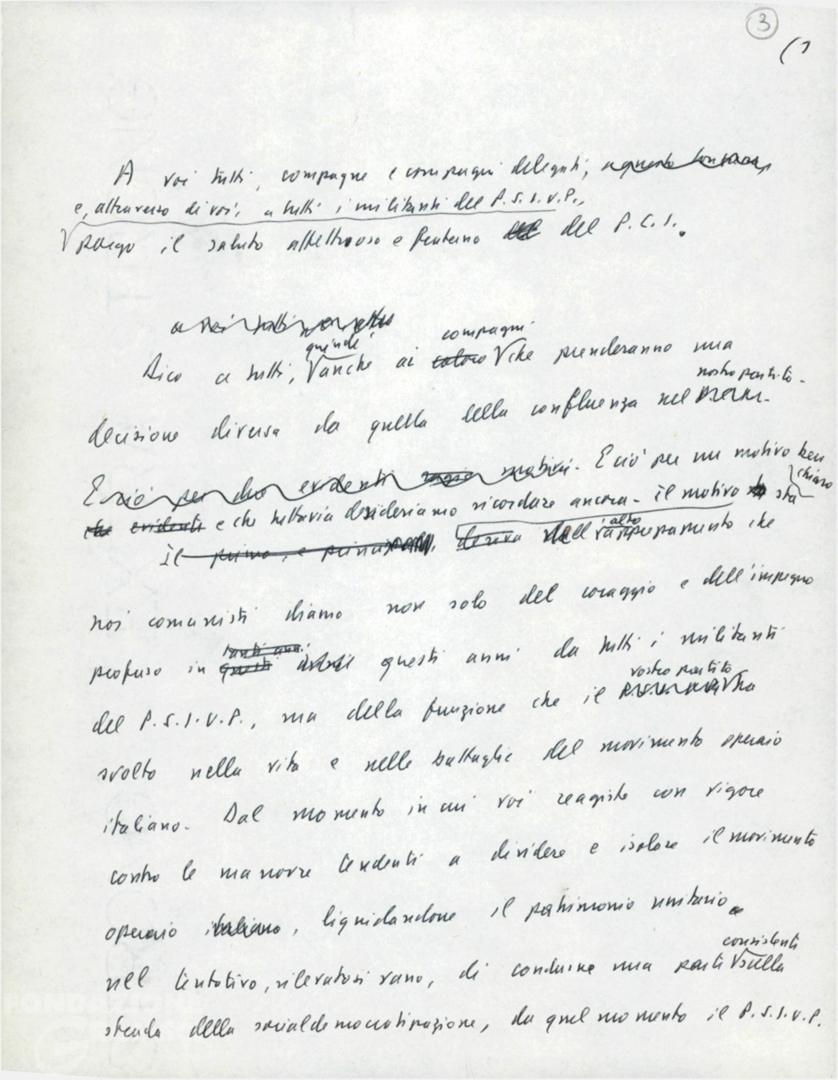 3
(1
A voi tutti, compagne e compagni delegati,
e, attraverso di voi, a tutti i militanti del P.S.I.U.P.,
porgo il saluto affettuoso e fraterno del P.C.I.
quindi compagni
Dico a tutti, anche ai coloro che prenderanno una
nostro partito.
decisione diversa da quella della confluenza nel
E ciò per due evidenti motivi. E ciò per un motivo ben
chiaro
che evidenti e che tuttavia desideriamo ricordare ancora. il motivo sta
alto
Il primo, e principale, deriva dall' apprezzamento che
noi comunisti diamo non solo del coraggio e dell'impegno
tanti anni
profuso in questi questi anni da tutti i militanti
vostro partito
del P.S.I.U.P., ma della funzione che il ha
svolto nella vita e nelle battaglie del movimento operaio
italiano. Dal momento in cui voi reagiste con vigore
contro le manovre tendenti a dividere e isolare il movimento
operaio italiano, liquidandone il patrimonio unitario
consistente
nel tentativo, rilevatosi vano, di condurne una parte sulla
strada della socialdemocratizzazione, da quel momento il P.S.I.U.P.
FONDAZIONE